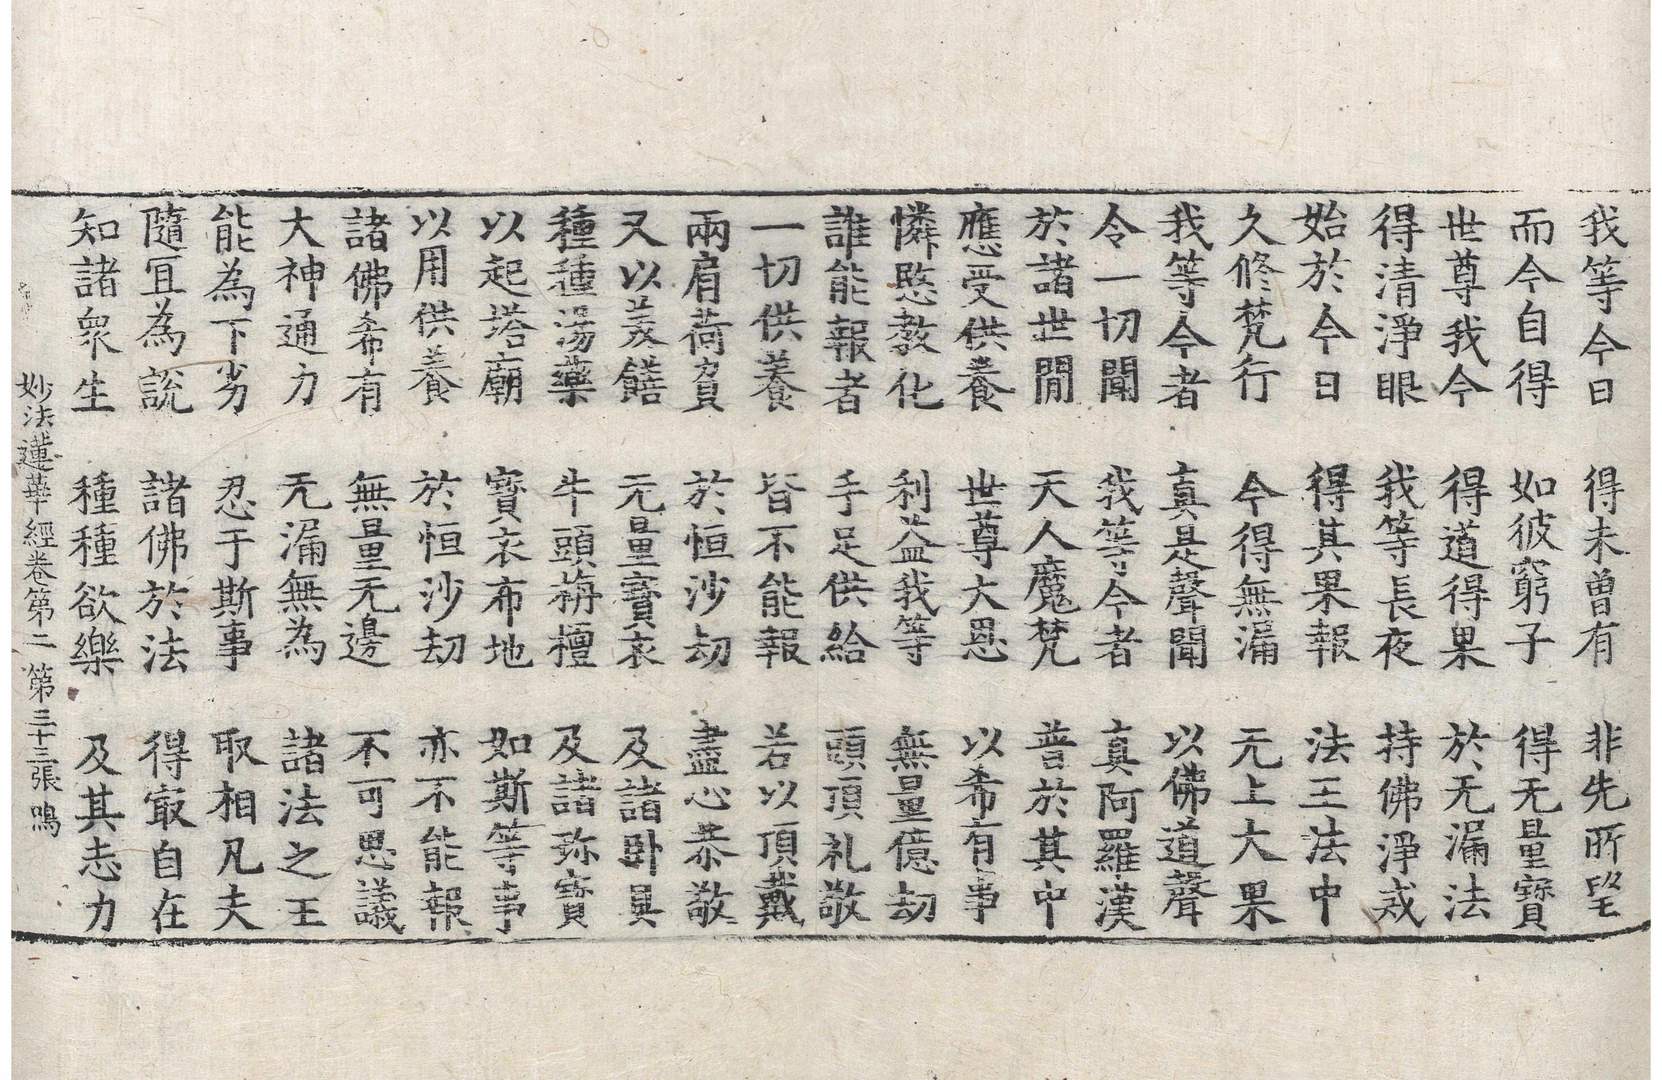 我等今日　得未曽有　非先所望
而今自得　如彼窮子　得无量寶
世尊我今　得道得果　於无漏法
得清淨眼　我等長夜　持佛淨戒
始於今日　得其果報　法王法中
久修梵行　今得無漏　无上大果
我等今者　真是聲聞　以佛道聲
令一切聞　我等今者　真阿羅漢
於諸世間　天人魔梵　普於其中
應受供養　世尊大恩　以希有事
憐愍教化　利益我等　無量億劫
誰能報者　手足供給　頭頂礼敬
一切供養　皆不能報　若以頂戴
兩肩荷負　於恒沙劫　盡心恭敬
又以羙饍　无量寶衣　及諸卧具
種種湯藥　牛頭栴檀　及諸珎寶
以起塔廟　寶衣布地　如斯等事
以用供養　於恒沙劫　亦不能報
諸佛希有　無量无邊　不可思議
大神通力　无漏無為　諸法之王
能為下劣　忍于斯事　取相凡夫
隨冝為說　諸佛於法　得㝡自在
知諸眾生　種種欲樂　及其志力
妙法蓮華經卷第二　第三十三張　鳴